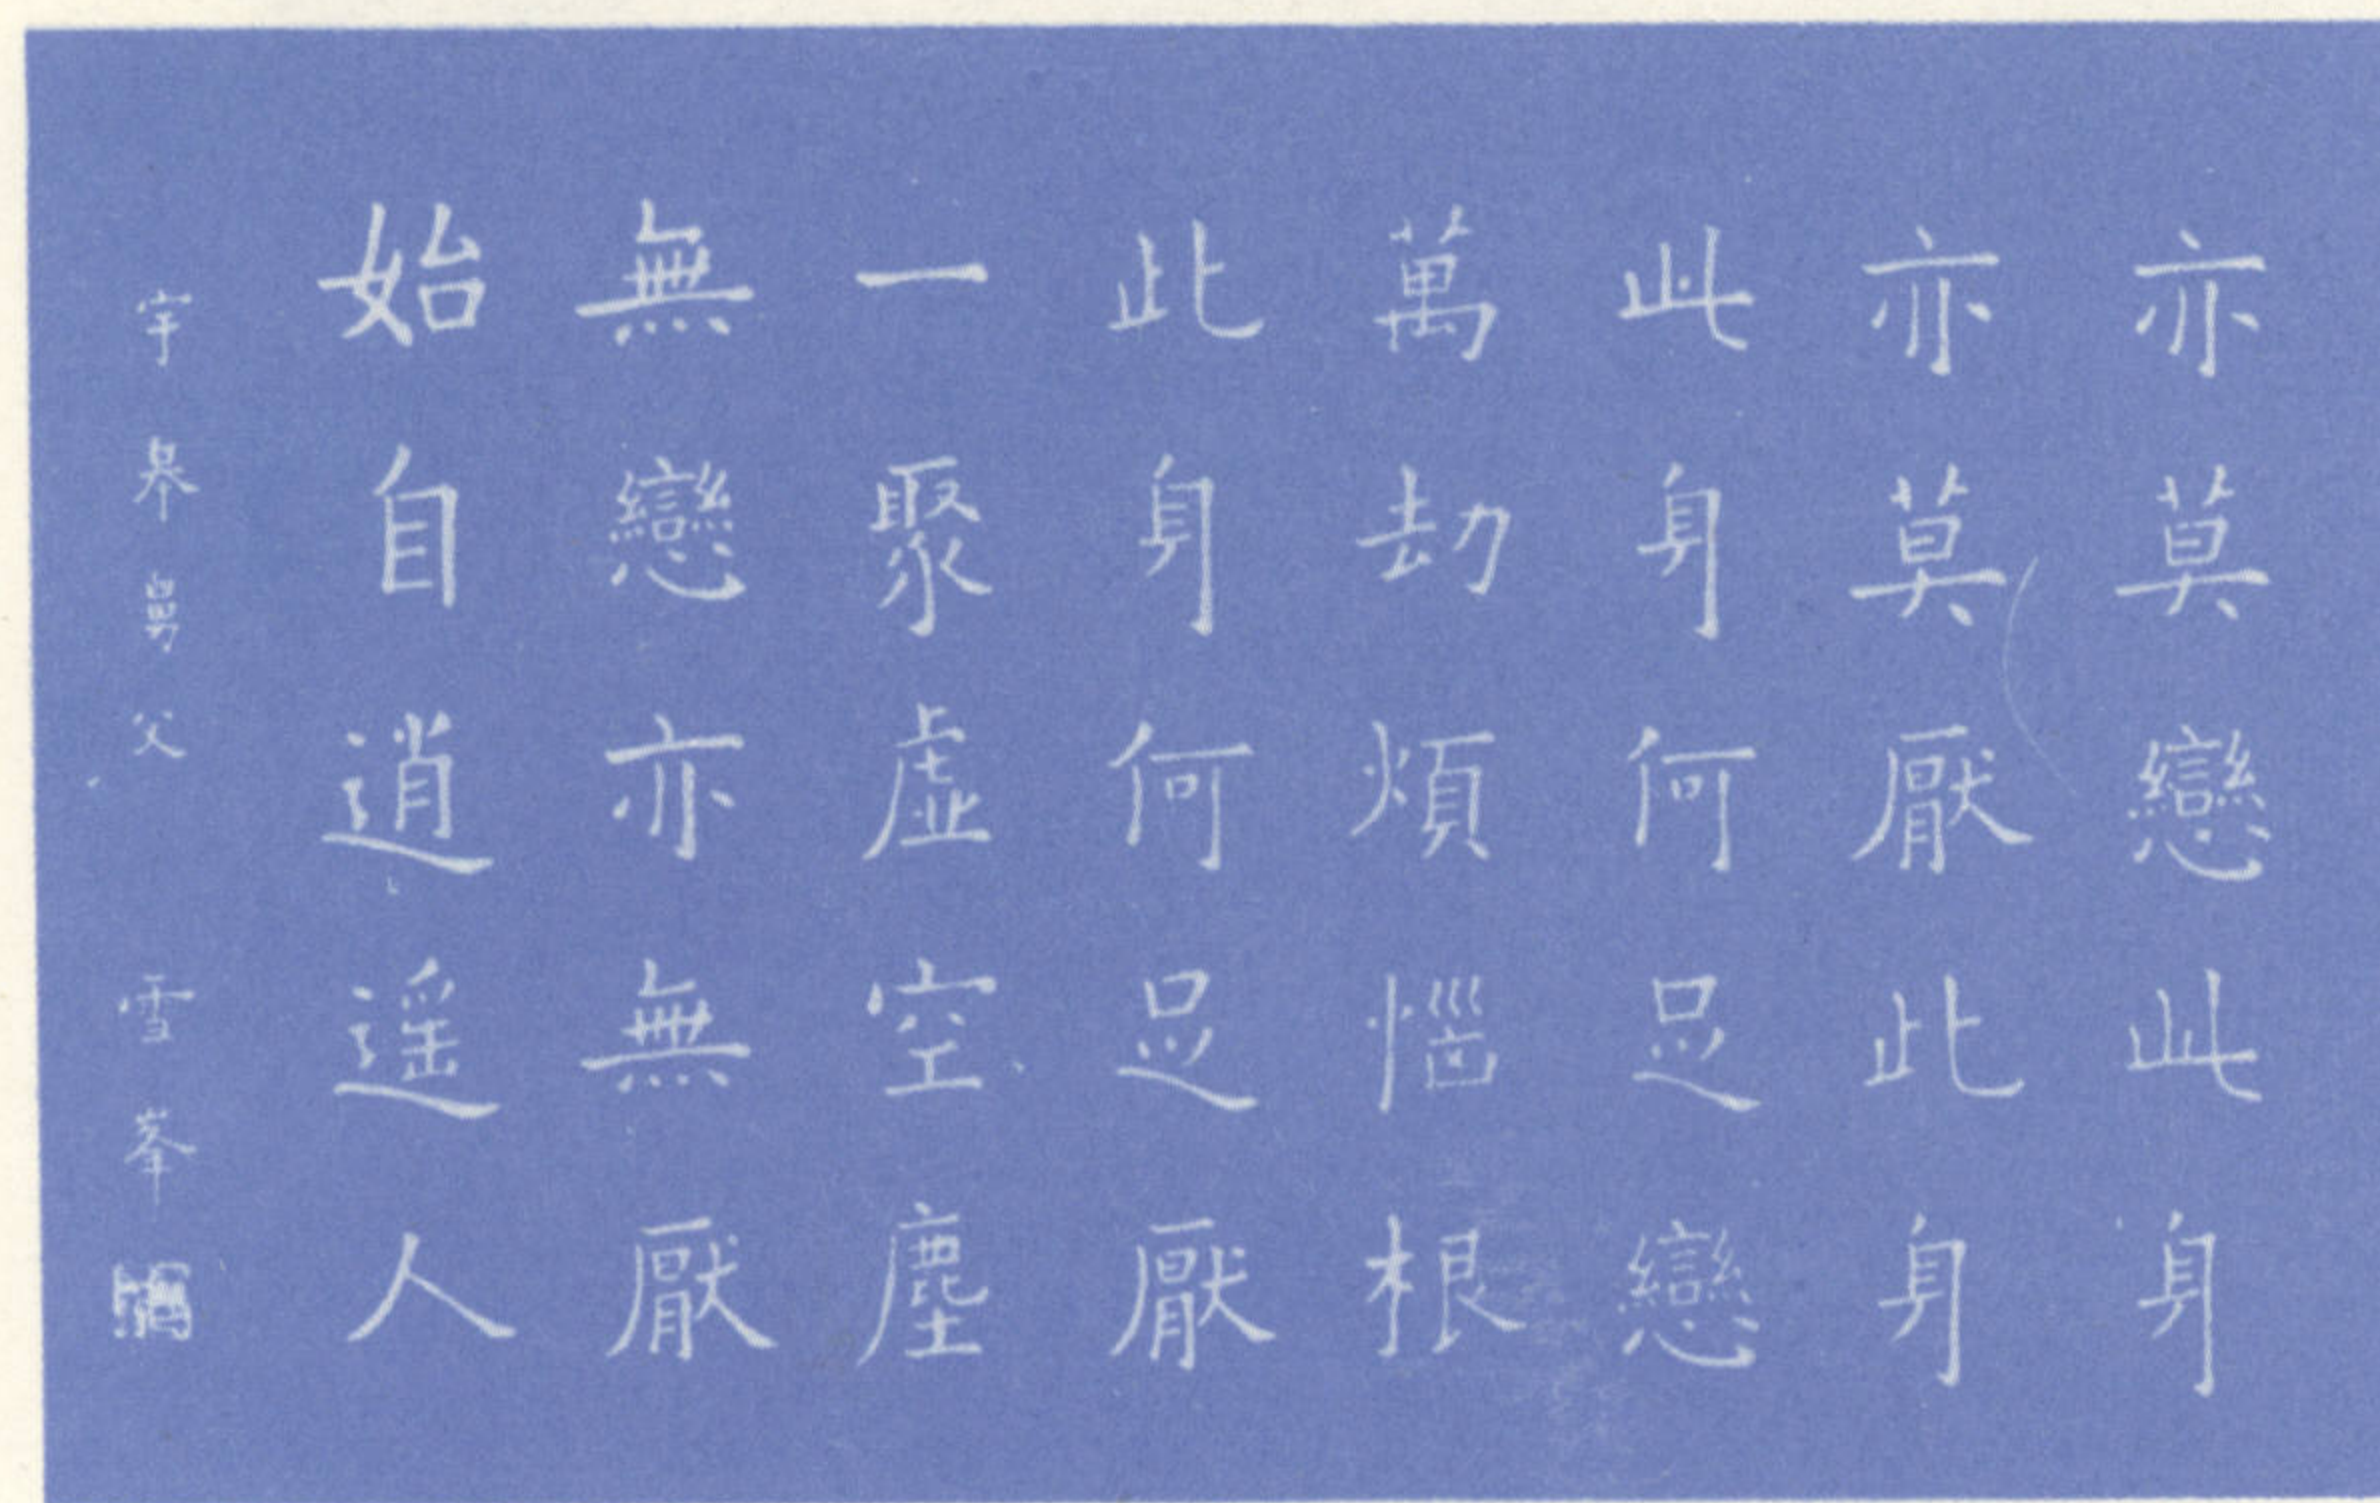 亦莫戀此身
亦莫厭此身
此身何足戀
萬劫煩惱根
此身何足厭
一聚虛空塵
無戀亦無厭
始自逍遥人
宇 舅父 雪峯